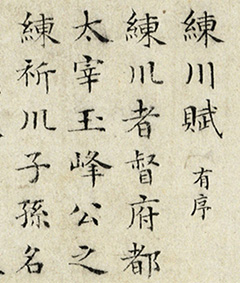 練川賦 有序
練川者督府都
太宰玉峰公之
練祈川子孫名